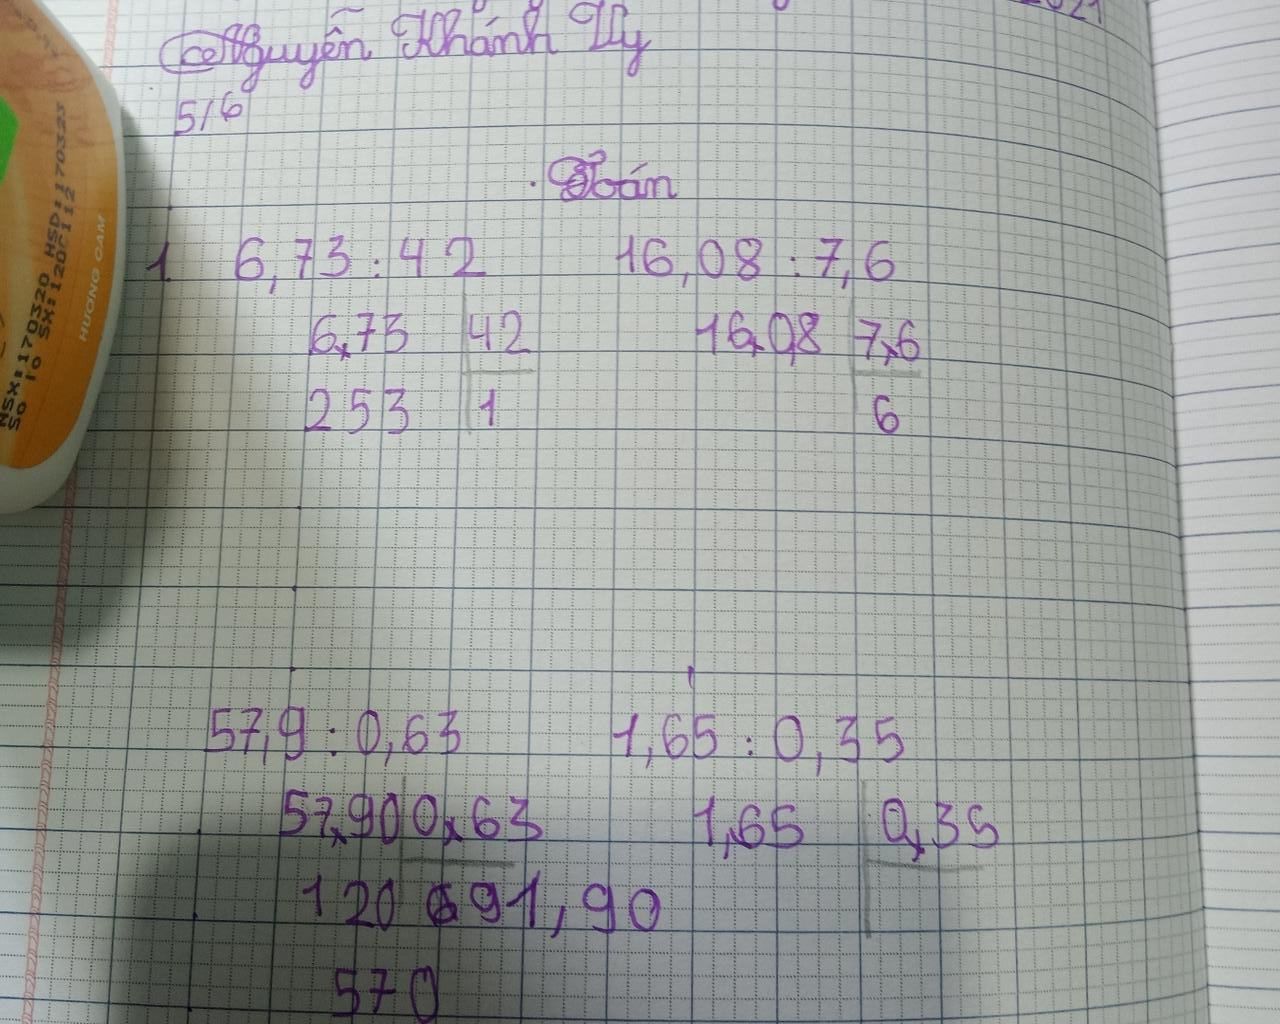 2021
Nguyễn Khánh Vy
5/6
Toán
1. 6,73 : 42 16,08 : 7,6
6,73 42 16,08 7,6
253 1 6
57,9 : 0,63 1,65 : 0,35
57,90 0,63 1,65 0,35
120 91,90
570
NSX:170320 HSD:170323
SO 10 SX:120C112
HUONG CAM